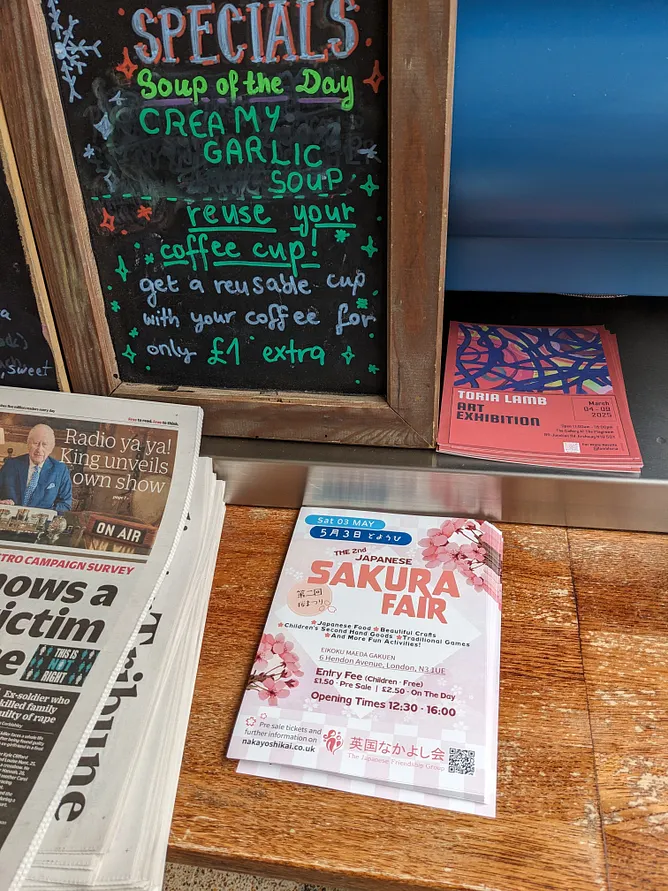 SPECIALS
Soup of the Day
CREAMY
GARLIC
SOUP
reuse your
coffee cup!
get a reusable cup
with your coffee for
only £1 extra
sweet
TORIA LAMB
ART
EXHIBITION
March
04-09
2025
Radio ya ya!
King unveils
own show
ON AIR
TRO CAMPAIGN SURVEY
ows a
ictim
e
THIS IS
NOT
RIGHT
Ex-soldier who
killed family
guilty of rape
Tribune
Sat 03 MAY
5月3日 どようび
THE 2nd
JAPANESE
SAKURA
FAIR
第二回
Japanese Food Beautiful Crafts
Children's Second Hand Goods Traditional Games
And More Fun Activities!
EIKOKU MAEDA GAKUEN
6 Hendon Avenue, London, N3 1UE
Entry Fee (Children - Free)
£1.50 - Pre Sale | £2.50 - On The Day
Opening Times 12:30 - 16:00
Pre sale tickets and
further information on
nakayoshikai.co.uk
英国なかよし会
The Japanese Friendship Group